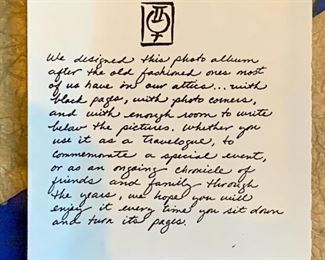 We designed this photo album
after the old fashioned ones most
of us have in our attics...with
black pages, with photo corners,
and with enough room to write
below the pictures. Whether you
use it as a travelogue, to
commemorate a special event,
or as an ongoing chronicle of
friends and family through
the years, we hope you will
enjoy it every time you sit down
and turn its pages.